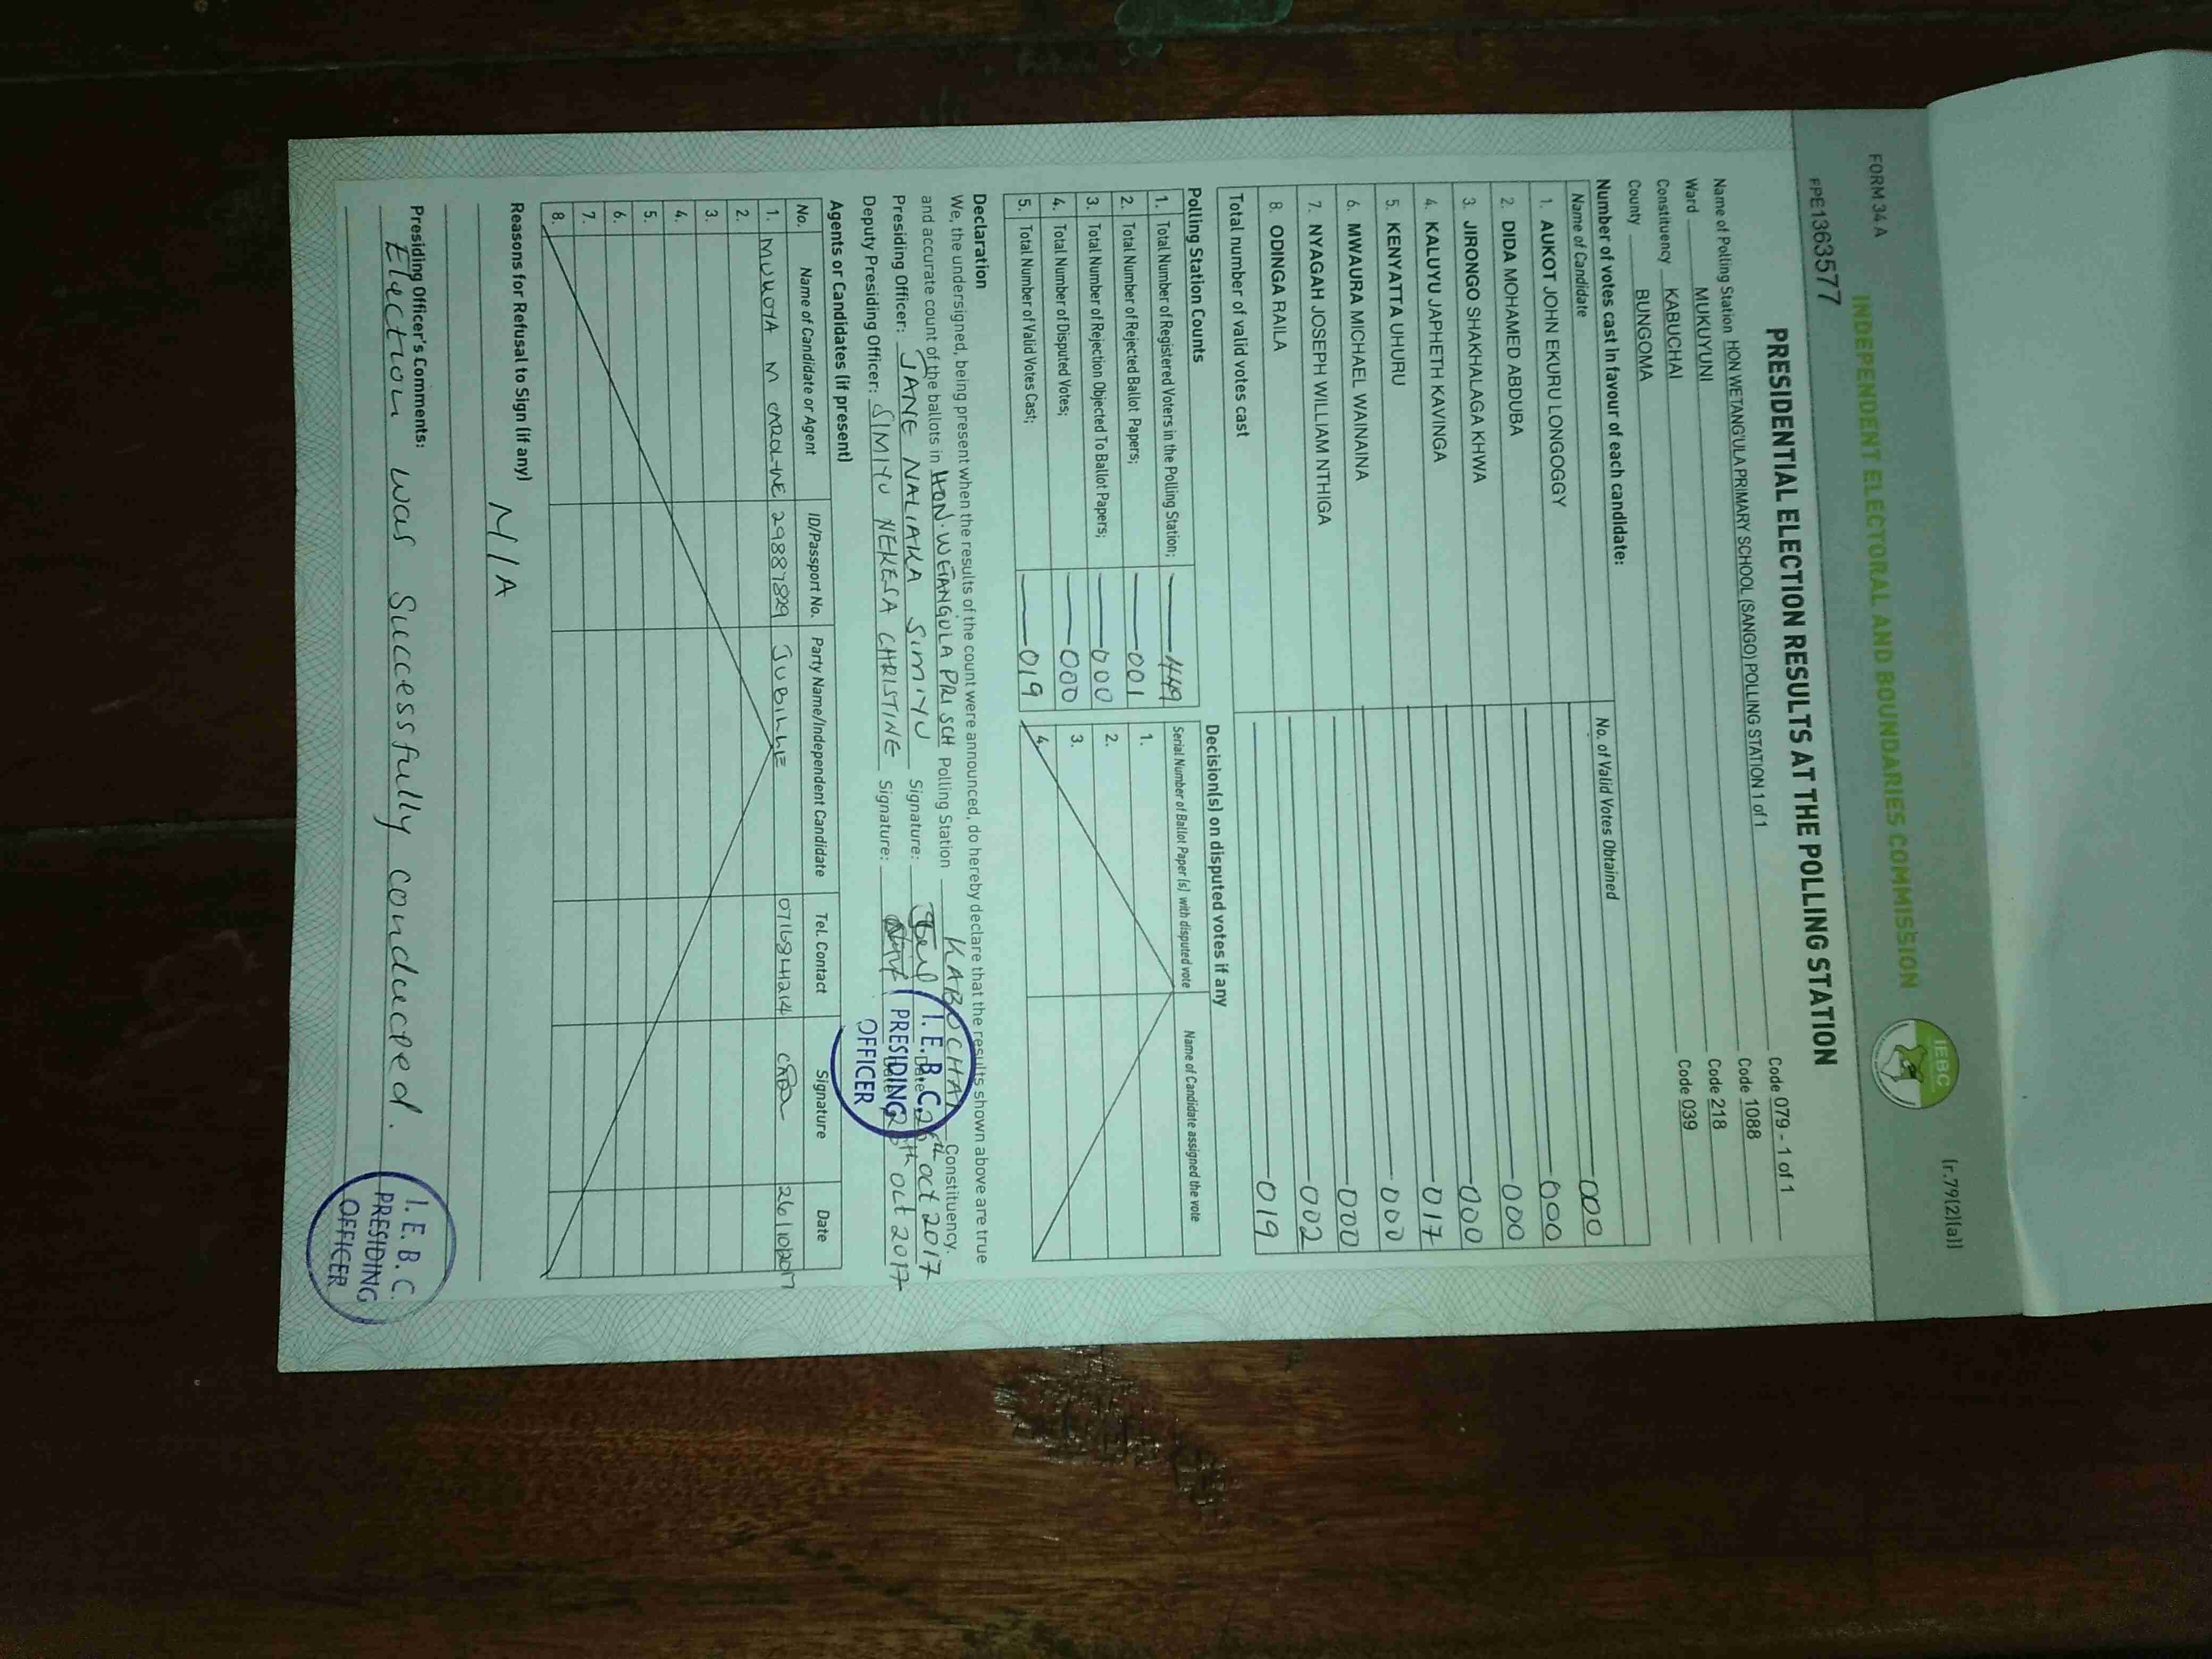 FORM 34 A
(r.79(2)(a))
INDEPENDENT ELECTORAL AND BOUNDARIES COMMISSION
IEBC
PPE1363577
PRESIDENTIAL ELECTION RESULTS AT THE POLLING STATION
Name of Polling Station HON WETANG'ULA PRIMARY SCHOOL (SANGO) POLLING STATION 1 of 1 Code 079 - 1 of 1
Ward MUKUYUNI Code 1088
Constituency KABUCHAI Code 218
County BUNGOMA Code 039
Number of votes cast in favour of each candidate:
Name of Candidate No. of Valid Votes Obtained
1. AUKOT JOHN EKURU LONGOGGY 000
2. DIDA MOHAMED ABDUBA 000
3. JIRONGO SHAKHALAGA KHWA 000
4. KALUYU JAPHETH KAVINGA 000
5. KENYATTA UHURU 017
6. MWAURA MICHAEL WAINAINA 000
7. NYAGAH JOSEPH WILLIAM NTHIGA 000
8. ODINGA RAILA 002
Total number of valid votes cast 019
Polling Station Counts
1. Total Number of Registered Voters in the Polling Station; 449
2. Total Number of Rejected Ballot Papers; 001
3. Total Number of Rejection Objected To Ballot Papers; 000
4. Total Number of Disputed Votes; 000
5. Total Number of Valid Votes Cast; 019
Decision(s) on disputed votes if any
Serial Number of Ballot Paper (s) with disputed vote Name of Candidate assigned the vote
1.
2.
3.
4.
Declaration
We, the undersigned, being present when the results of the count were announced, do hereby declare that the results shown above are true
and accurate count of the ballots in HON. WETANGULA PRI SCH Polling Station KABUCHAI Constituency.
Presiding Officer: JANE NALIAKA SIMIYU Signature: Date: 26th oct 2017
Deputy Presiding Officer: SIMIYU NEKESA CHRISTINE Signature: Date: 26th oct 2017
I. E. B. C.
PRESIDING
OFFICER
Agents or Candidates (if present)
No. Name of Candidate or Agent ID/Passport No. Party Name/Independent Candidate Tel. Contact Signature Date
1. M CAROLINE 29887829 JUBILEE 0716841214 26/10/2017
2.
3.
4.
5.
6.
7.
8.
Reasons for Refusal to Sign (if any)
N/A
Presiding Officer's Comments:
Election was Successfully conducted.
I. E. B. C.
PRESIDING
OFFICER